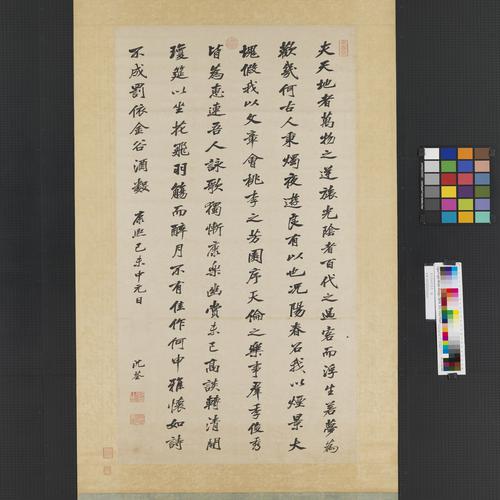 夫天地者萬物之逆旅光陰者百代之過客而浮生若夢為
歡幾何古人秉燭夜遊良有以也況陽春召我以煙景大
塊假我以文章會桃李之芳園序天倫之樂事羣季俊秀
皆為惠連吾人詠歌獨慚康樂幽賞未已高談轉清開
瓊筵以坐花飛羽觴而醉月不有佳作何申雅懷如詩
不成罰依金谷酒數
康熙己未中元日
沈荃